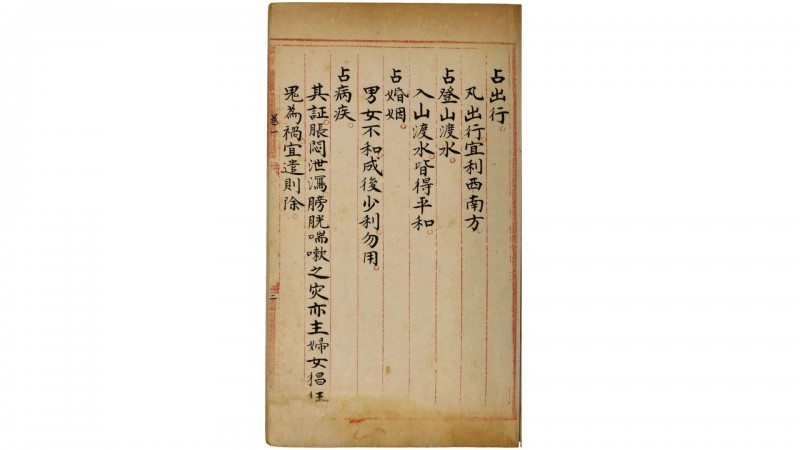 占出行。
凡出行宜利西南方。
占登山渡水。
入山渡水皆得平和。
占婚姻。
男女不和成後少利勿用。
占病疾。
其証脹悶泄瀉膀胱喘嗽之灾亦主婦女猖狂
鬼為禍宜遣則除。
卷一
二